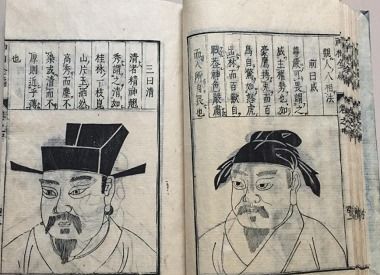 觀人八相法
曰威
尊嚴可畏謂之
威主權勢也如
豪鷹搏兔而百
鳥自驚如怒虎
出林而百獸自
戰蓋神色嚴肅
而人所自畏也
三曰清
清者精神翹
秀謂之清如
桂林一枝崑
山片玉灑然
高秀而塵不
染或清而不
厚則近乎薄
也